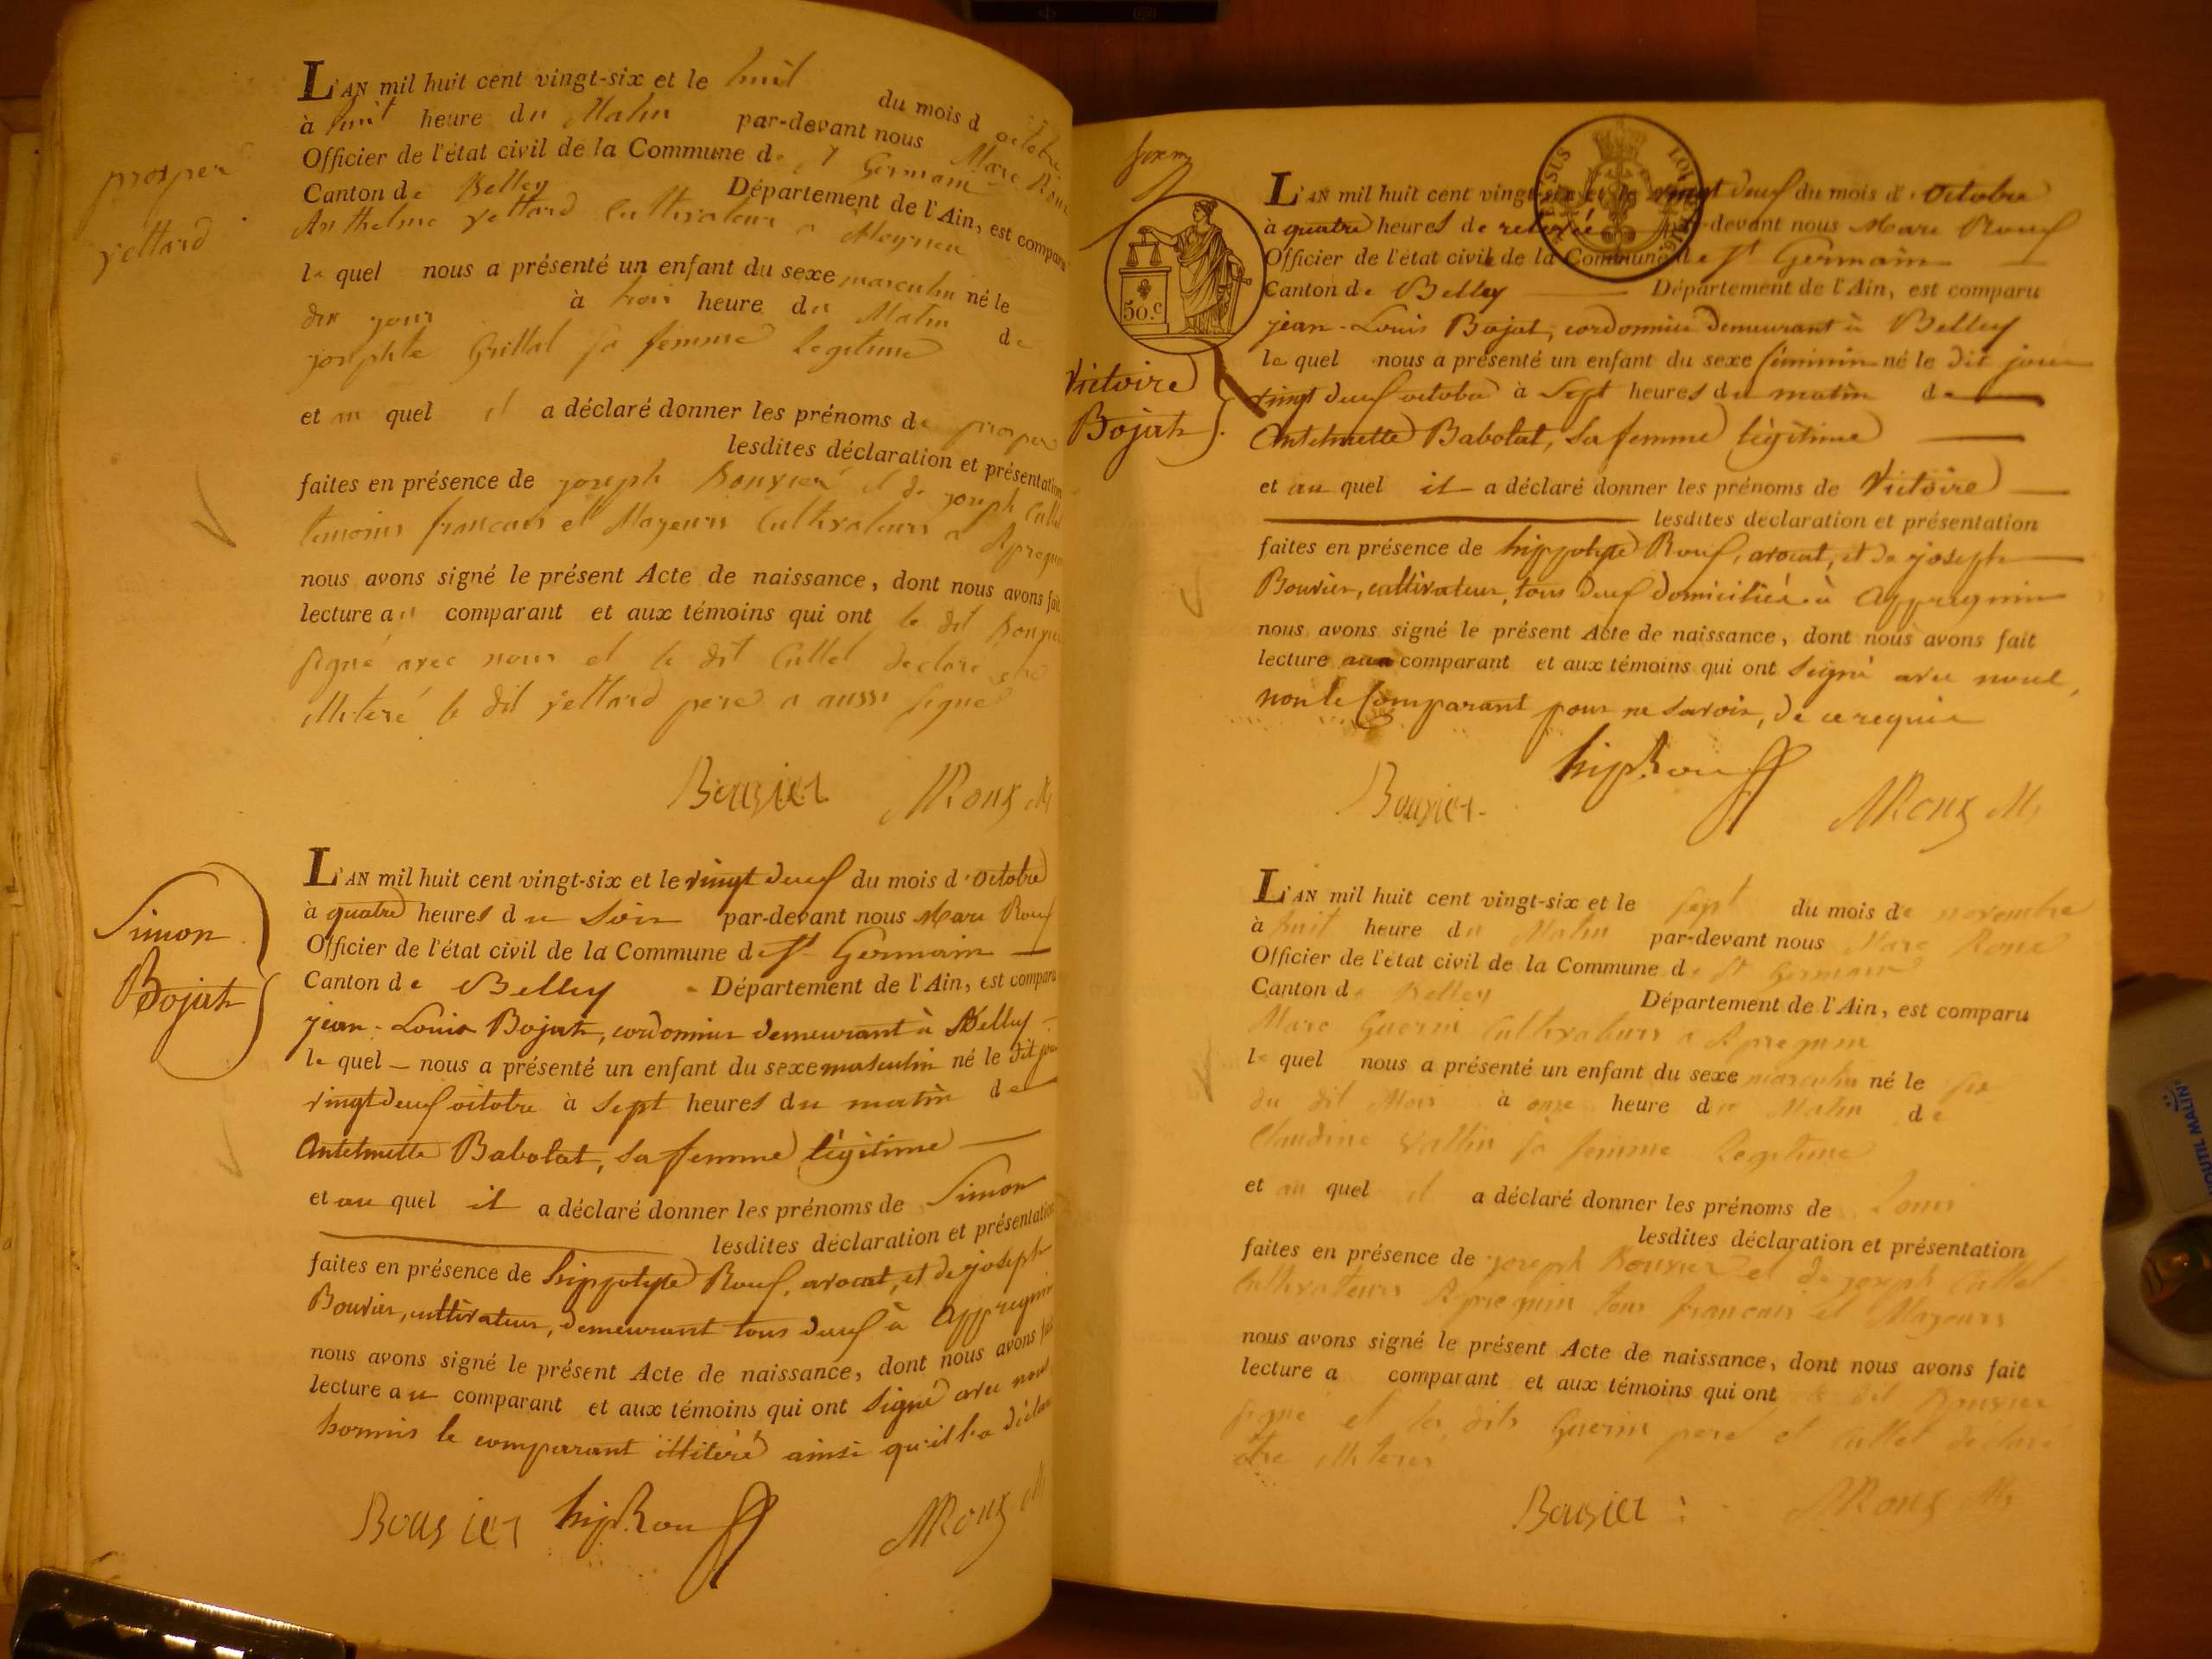 prosper
vettard
L'AN mil huit cent vingt-six et le huit du mois d octobre
à huit heure du Matin par-devant nous Marc Roux
Officier de l'état civil de la Commune de St Germain
Canton de Belley Département de l'Ain, est comparu
Anthelme vettard Cultivateur a
le quel nous a présenté un enfant du sexe masculin né le
dix jour à trois heure du Matin de
josephte Grillat sa femme legitime
et au quel il a déclaré donner les prénoms de prosper
lesdites déclaration et présentation
faites en présence de joseph Bouvier et de joseph Cullet
temoins francais et Mageurs Cultivateurs a Apregnin
nous avons signé le présent Acte de naissance, dont nous avons fait
lecture au comparant et aux témoins qui ont le dit Bouvier
signé avec nous et le dit Cullet declaré etre
illiteré le dit vettard pere a aussi signé
Bouvier MRoux M
Simon
Bojat
L'AN mil huit cent vingt-six et le vingt deux du mois d'octobre
à quatre heures du Soir par-devant nous Marc Roux
Officier de l'état civil de la Commune de St Germain
Canton de Belley Département de l'Ain, est comparu
jean-Louis Bojat, cordonnier demeurant à Belley
le quel nous a présenté un enfant du sexe masculin né le dit jour
vingt deux octobre à Sept heures du matin de
Antelmette Babolat, sa femme légitime
et au quel il a déclaré donner les prénoms de Simon
lesdites déclaration et présentation
faites en présence de hippolyte Roux, avocat, et de joseph
Bouvier, cultivateur, demeurant tous deux à Appregnin
nous avons signé le présent Acte de naissance, dont nous avons fait
lecture au comparant et aux témoins qui ont Signé avec nous
hormis le comparant illitéré ainsi qu'il l'a déclaré
Bouvier hip Roux MRoux M
50.c
LOI
Victoire
Bojat
L'AN mil huit cent vingt-six et le vingt deux du mois d'Octobre
à quatre heures de relevée par-devant nous Marc Roux
Officier de l'état civil de la Commune de St Germain
Canton de Belley Département de l'Ain, est comparu
jean-Louis Bojat, cordonnier demeurant à Belley
le quel nous a présenté un enfant du sexe féminin né le dit jour
vingt deux octobre à Sept heures du matin de
Antelmette Babolat, sa femme légitime
et au quel il a déclaré donner les prénoms de Victoire
lesdites déclaration et présentation
faites en présence de hippolyte Roux, avocat, et de joseph
Bouvier, cultivateur, tous deux domiciliés à Appregnin
nous avons signé le présent Acte de naissance, dont nous avons fait
lecture au comparant et aux témoins qui ont Signé avec nous,
non le Comparant pour ne savoir, de ce requis
Bouvier hip Roux MRoux M
L'AN mil huit cent vingt-six et le sept du mois de novembre
à huit heure du Matin par-devant nous Marc Roux
Officier de l'état civil de la Commune de St Germain
Canton de Belley Département de l'Ain, est comparu
Marc Guerin Cultivateurs a Apregnin
le quel nous a présenté un enfant du sexe masculin né le six
du dit Mois à onze heure du Matin de
Claudine vallin sa femme legitime
et au quel il a déclaré donner les prénoms de Louis
lesdites déclaration et présentation
faites en présence de joseph Bouvier et de joseph Cullet
Cultivateurs Apregnin tous francais et Mageurs
nous avons signé le présent Acte de naissance, dont nous avons fait
lecture a comparant et aux témoins qui ont le dit Bouvier
signé et les dits Guerin pere et Cullet declaré
etre illiterés
Bouvier MRoux M
OUTIL MALIN